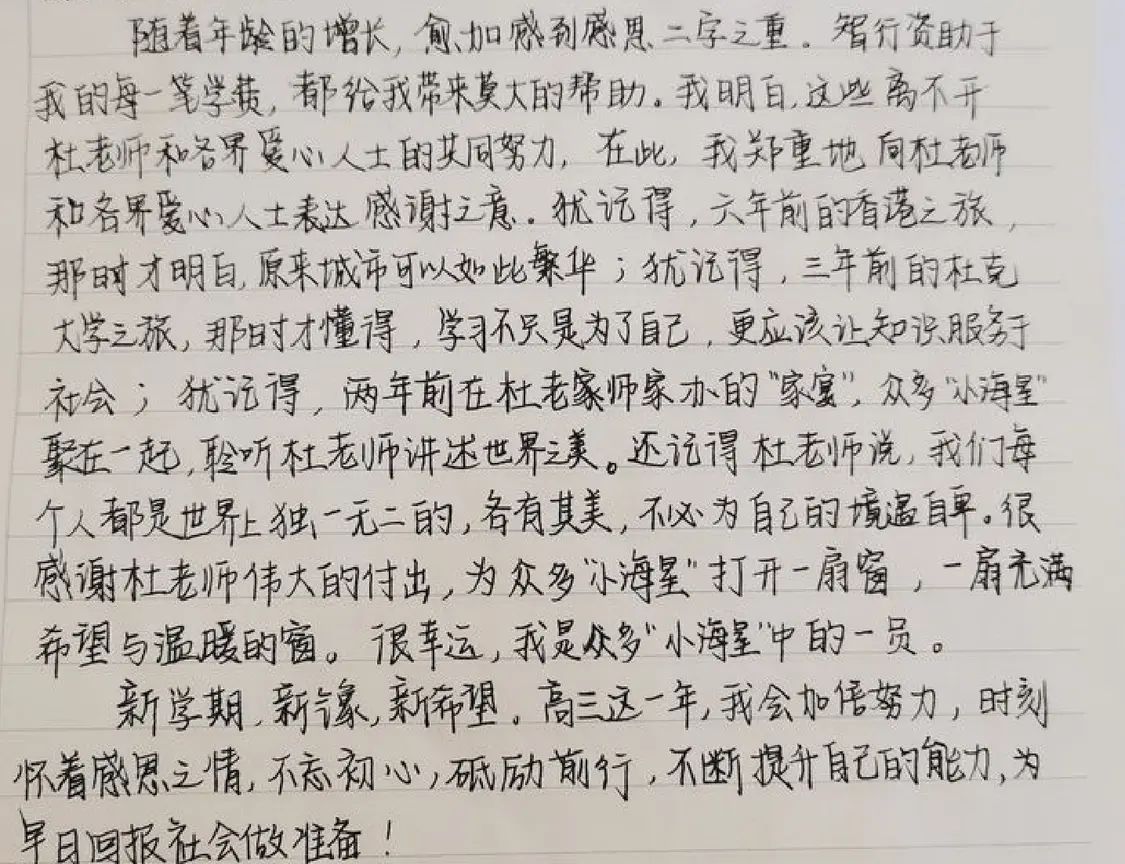 随着年龄的增长，愈加感到感恩二字之重。智行资助于
我的每一笔学费，都给我带来莫大的帮助。我明白，这些离不开
杜老师和各界爱心人士的共同努力，在此，我郑重地向杜老师
和各界爱心人士表达感谢之意。犹记得，六年前的香港之旅，
那时才明白，原来城市可以如此繁华；犹记得，三年前的杜克
大学之旅，那时才懂得，学习不只是为了自己，更应该让知识服务于
社会；犹记得，两年前在杜老家师家办的“家宴”，众多“小海星”
聚在一起，聆听杜老师讲述世界之美。还记得杜老师说，我们每
个人都是世界上独一无二的，各有其美，不必为自己的境遇自卑。很
感谢杜老师伟大的付出，为众多“小海星”打开一扇窗，一扇充满
希望与温暖的窗。很幸运，我是众多“小海星”中的一员。
新学期，新气象，新希望。高三这一年，我会加倍努力，时刻
怀着感恩之情，不忘初心，砥励前行，不断提升自己的能力，为
早日回报社会做准备！